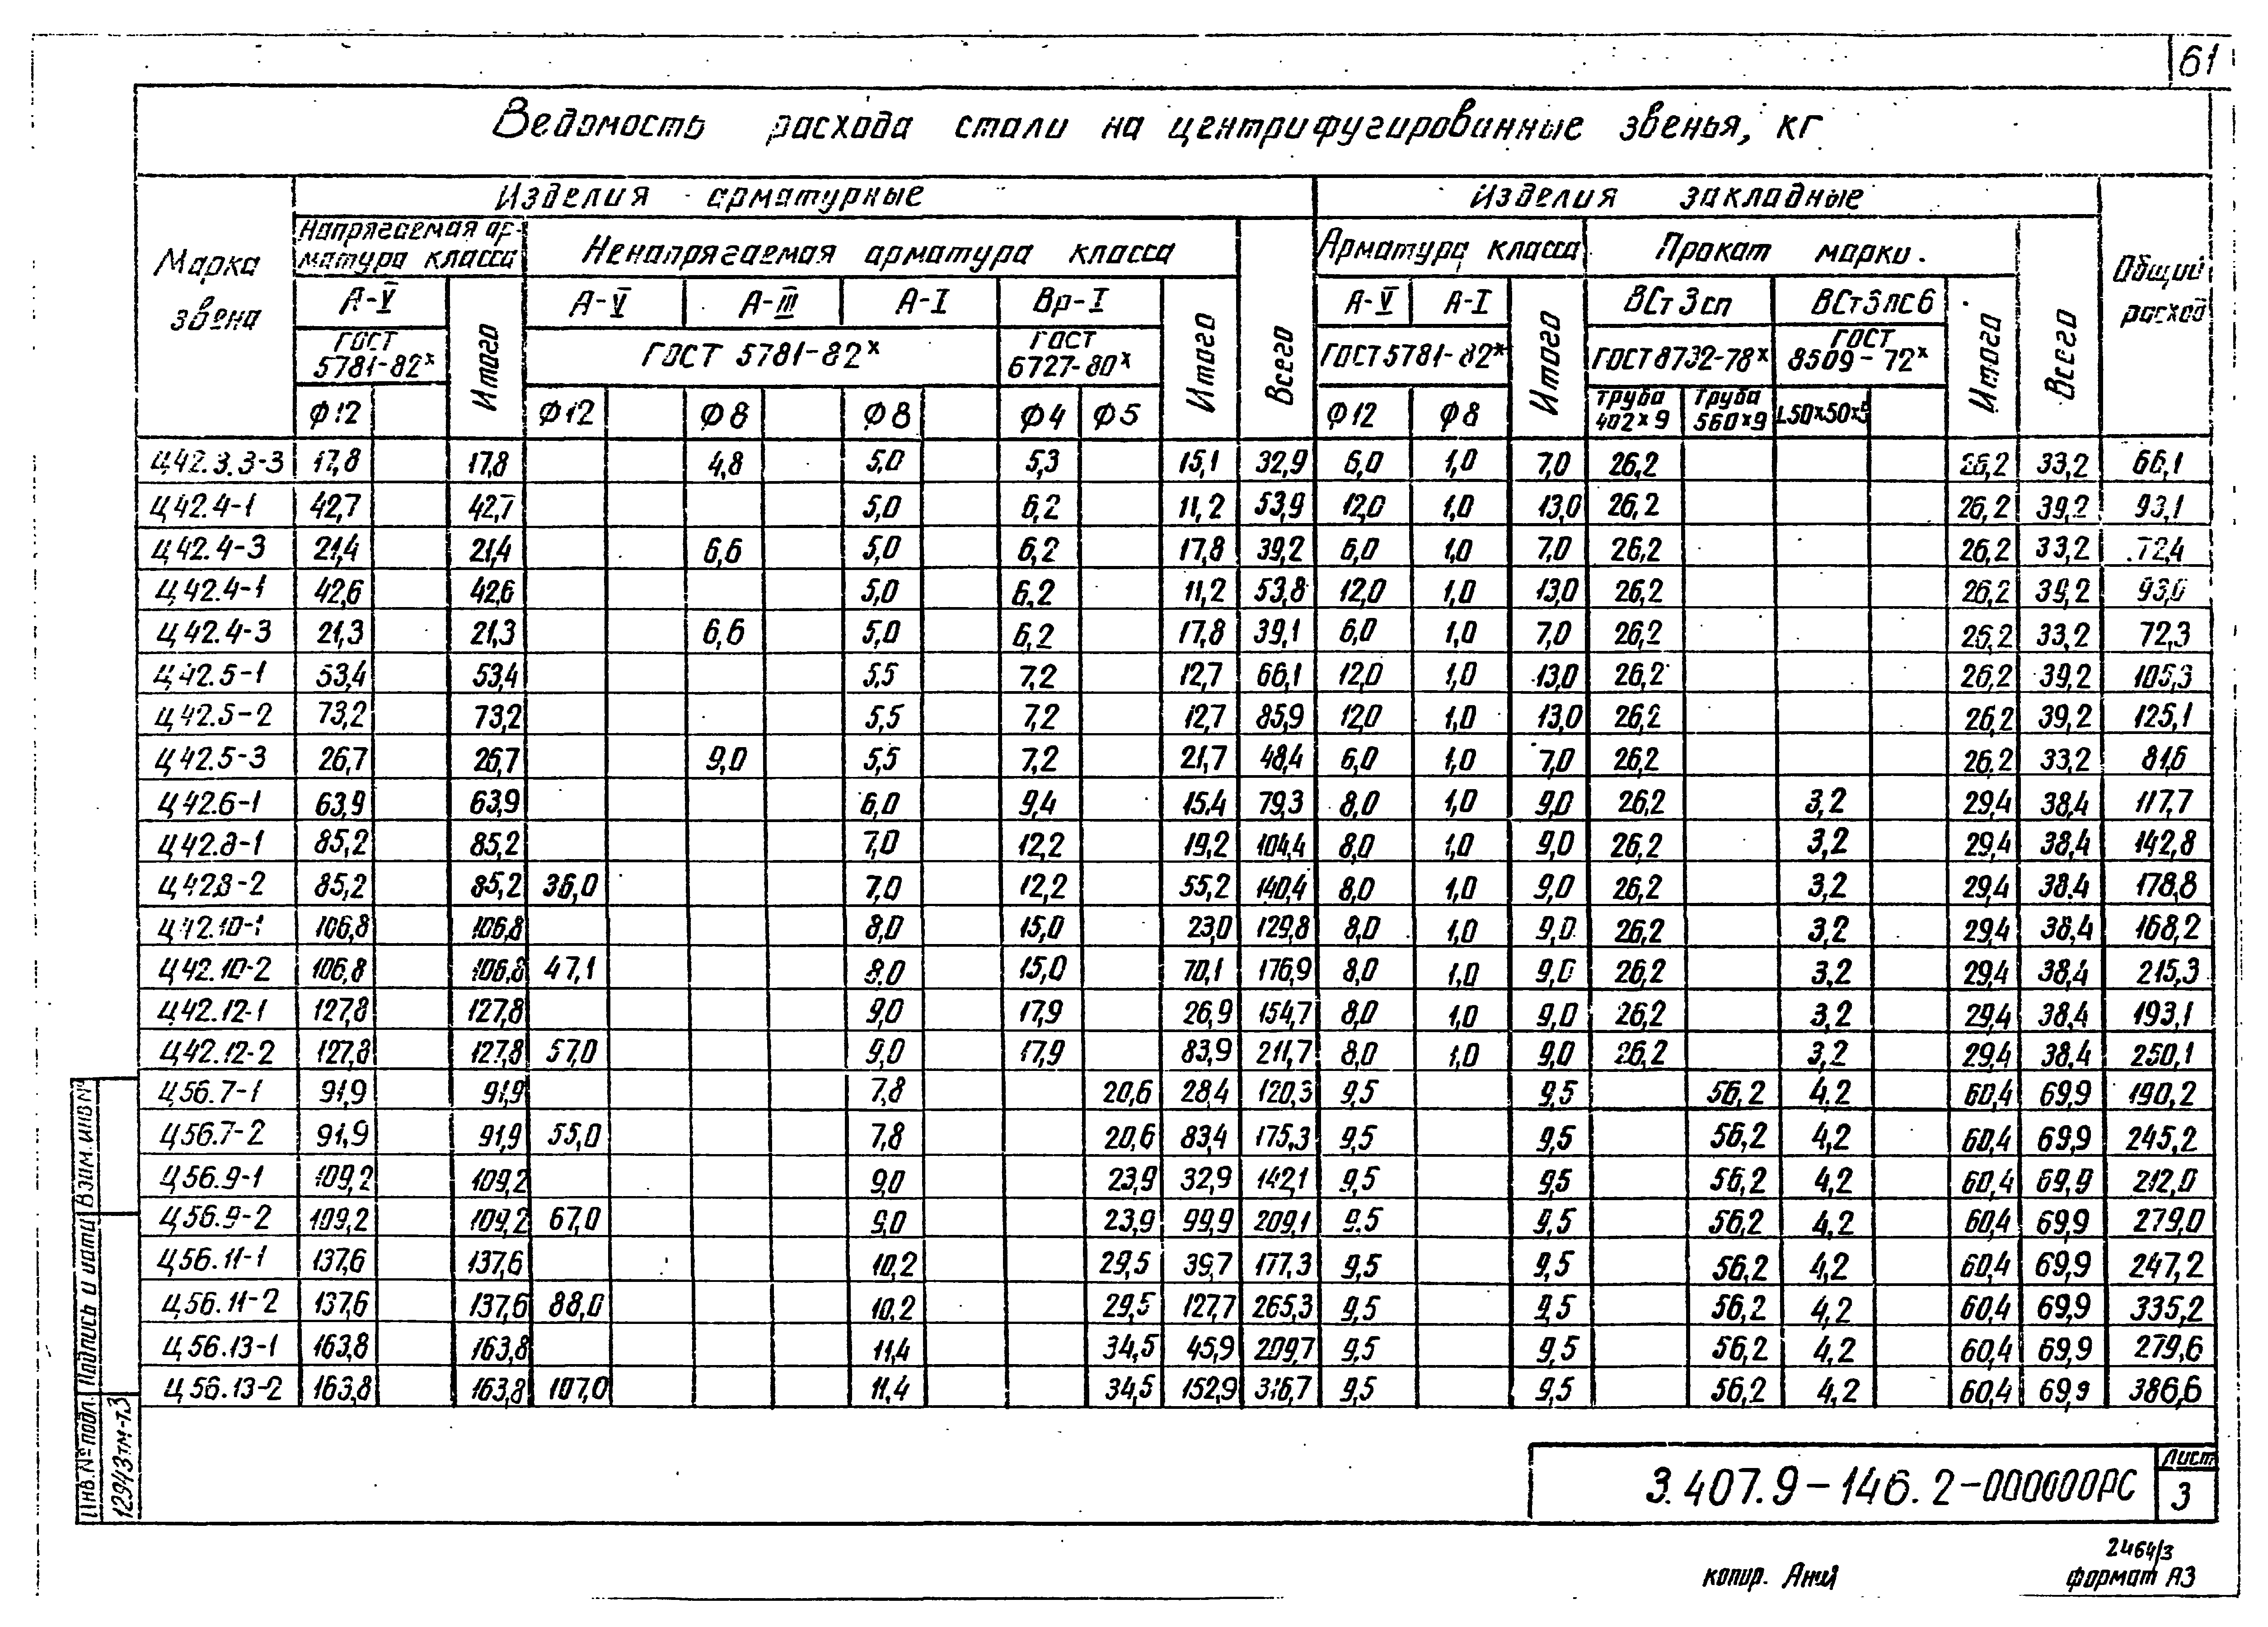 61
Ведомость расхода стали на центрифугированные звенья, кг
Марка звена
Изделия арматурные
Изделия закладные
Общий расход
Напрягаемая арматура класса
Ненапрягаемая арматура класса
Всего
Арматура класса
Прокат марки
Всего
А-V Итого А-V А-III А-I Вр-I Итого А-V А-I Итого ВСт3сп ВСт3пс6 Итого
ГОСТ 5781-82х ГОСТ 5781-82х ГОСТ 6727-80х ГОСТ 5781-82х ГОСТ 8732-78х ГОСТ 8509-72х
ф12 ф12 ф8 ф8 ф4 ф5 ф12 ф8 труба 402х9 труба 560х9 L50х50х5
Ц42.3.3-3 17,8 17,8 4,8 5,0 5,3 15,1 32,9 6,0 1,0 7,0 26,2 26,2 33,2 66,1
Ц42.4-1 42,7 42,7 5,0 6,2 11,2 53,9 12,0 1,0 13,0 26,2 26,2 39,2 93,1
Ц42.4-3 21,4 21,4 6,6 5,0 6,2 17,8 39,2 6,0 1,0 7,0 26,2 26,2 33,2 72,4
Ц42.4-1 42,6 42,6 5,0 6,2 11,2 53,8 12,0 1,0 13,0 26,2 26,2 39,2 93,0
Ц42.4-3 21,3 21,3 6,6 5,0 6,2 17,8 39,1 6,0 1,0 7,0 26,2 26,2 33,2 72,3
Ц42.5-1 53,4 53,4 5,5 7,2 12,7 66,1 12,0 1,0 13,0 26,2 26,2 39,2 105,3
Ц42.5-2 73,2 73,2 5,5 7,2 12,7 85,9 12,0 1,0 13,0 26,2 26,2 39,2 125,1
Ц42.5-3 26,7 26,7 9,0 5,5 7,2 21,7 48,4 6,0 1,0 7,0 26,2 26,2 33,2 81,6
Ц42.6-1 63,9 63,9 6,0 9,4 15,4 79,3 8,0 1,0 9,0 26,2 3,2 29,4 38,4 117,7
Ц42.8-1 85,2 85,2 7,0 12,2 19,2 104,4 8,0 1,0 9,0 26,2 3,2 29,4 38,4 142,8
Ц42.8-2 85,2 85,2 36,0 7,0 12,2 55,2 140,4 8,0 1,0 9,0 26,2 3,2 29,4 38,4 178,8
Ц42.10-1 106,8 106,8 8,0 15,0 23,0 129,8 8,0 1,0 9,0 26,2 3,2 29,4 38,4 168,2
Ц42.10-2 106,8 106,8 47,1 8,0 15,0 70,1 176,9 8,0 1,0 9,0 26,2 3,2 29,4 38,4 215,3
Ц42.12-1 127,8 127,8 9,0 17,9 26,9 154,7 8,0 1,0 9,0 26,2 3,2 29,4 38,4 193,1
Ц42.12-2 127,8 127,8 57,0 9,0 17,9 83,9 211,7 8,0 1,0 9,0 26,2 3,2 29,4 38,4 250,1
Ц56.7-1 91,9 91,9 7,8 20,6 28,4 120,3 9,5 9,5 56,2 4,2 60,4 69,9 190,2
Ц56.7-2 91,9 91,9 55,0 7,8 20,6 83,4 175,3 9,5 9,5 56,2 4,2 60,4 69,9 245,2
Ц56.9-1 109,2 109,2 9,0 23,9 32,9 142,1 9,5 9,5 56,2 4,2 60,4 69,9 212,0
Ц56.9-2 109,2 109,2 67,0 9,0 23,9 99,9 209,1 9,5 9,5 56,2 4,2 60,4 69,9 279,0
Ц56.11-1 137,6 137,6 10,2 29,5 39,7 177,3 9,5 9,5 56,2 4,2 60,4 69,9 247,2
Ц56.11-2 137,6 137,6 88,0 10,2 29,5 127,7 265,3 9,5 9,5 56,2 4,2 60,4 69,9 335,2
Ц56.13-1 163,8 163,8 11,4 34,5 45,9 209,7 9,5 9,5 56,2 4,2 60,4 69,9 279,6
Ц56.13-2 163,8 163,8 107,0 11,4 34,5 152,9 316,7 9,5 9,5 56,2 4,2 60,4 69,9 386,6
Взам. инв №
Подпись и дата
Инв. № подл.
12943тм-т3
3.407.9-146.2-000000РС
Лист
3
2464/3
копир.
формат А3